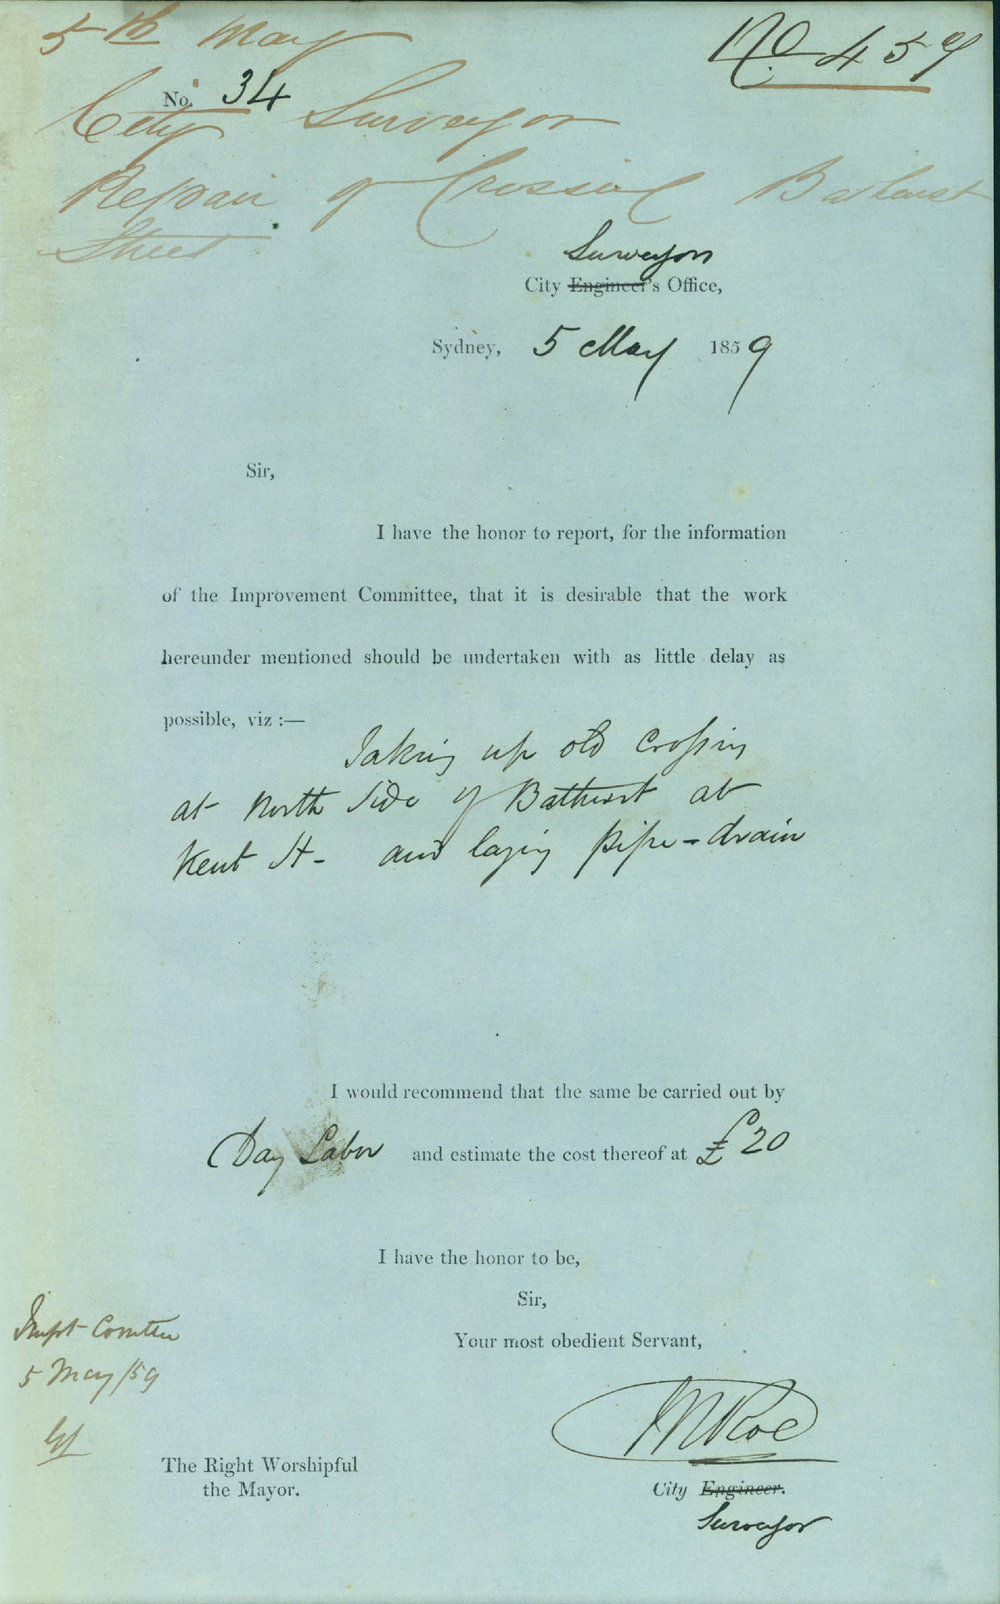 5th May
No 459
No. 34
City Surveyor
Repair of Crossing Bathurst
Street
Surveyors
City Engineer's Office,
Sydney, 5 May 1859
Sir,
I have the honor to report, for the information
of the Improvement Committee, that it is desirable that the work
hereunder mentioned should be undertaken with as little delay as
possible, viz :—
Taking up old crossing
at North Side of Bathurst at
Kent St - and laying pipe-drain
I would recommend that the same be carried out by
Day Labor and estimate the cost thereof at £20
I have the honor to be,
Sir,
Your most obedient Servant,
Impt Comtee
5 May/59
WRoe
The Right Worshipful
the Mayor.
City Engineer.
Surveyor